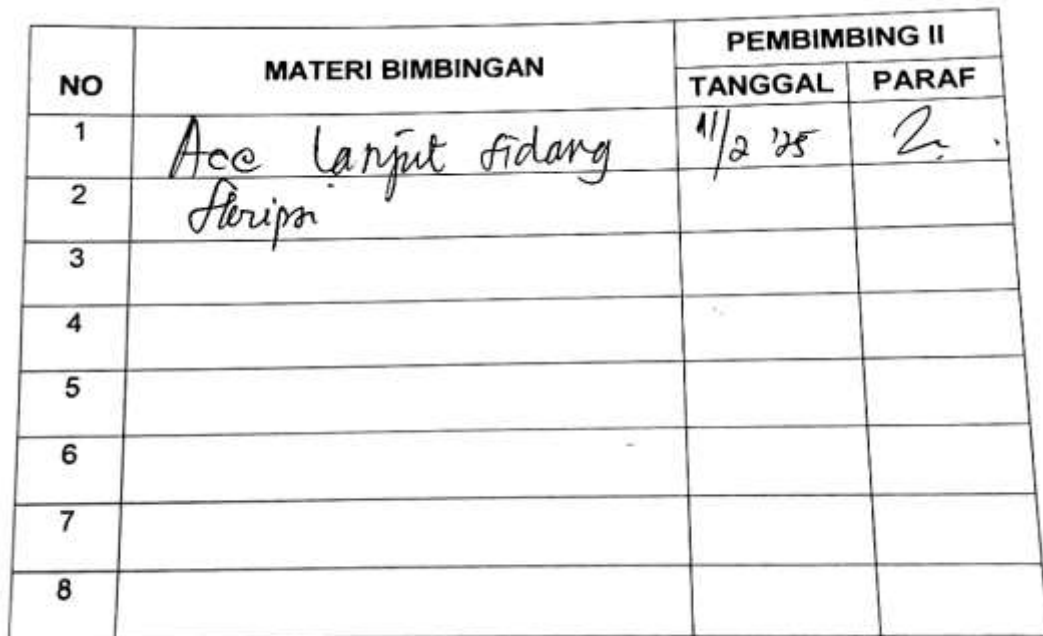 NO MATERI BIMBINGAN PEMBIMBING II
TANGGAL PARAF
1 Acc lanjut sidang 11/2 '25
2 Skripsi
3
4
5
6
7
8